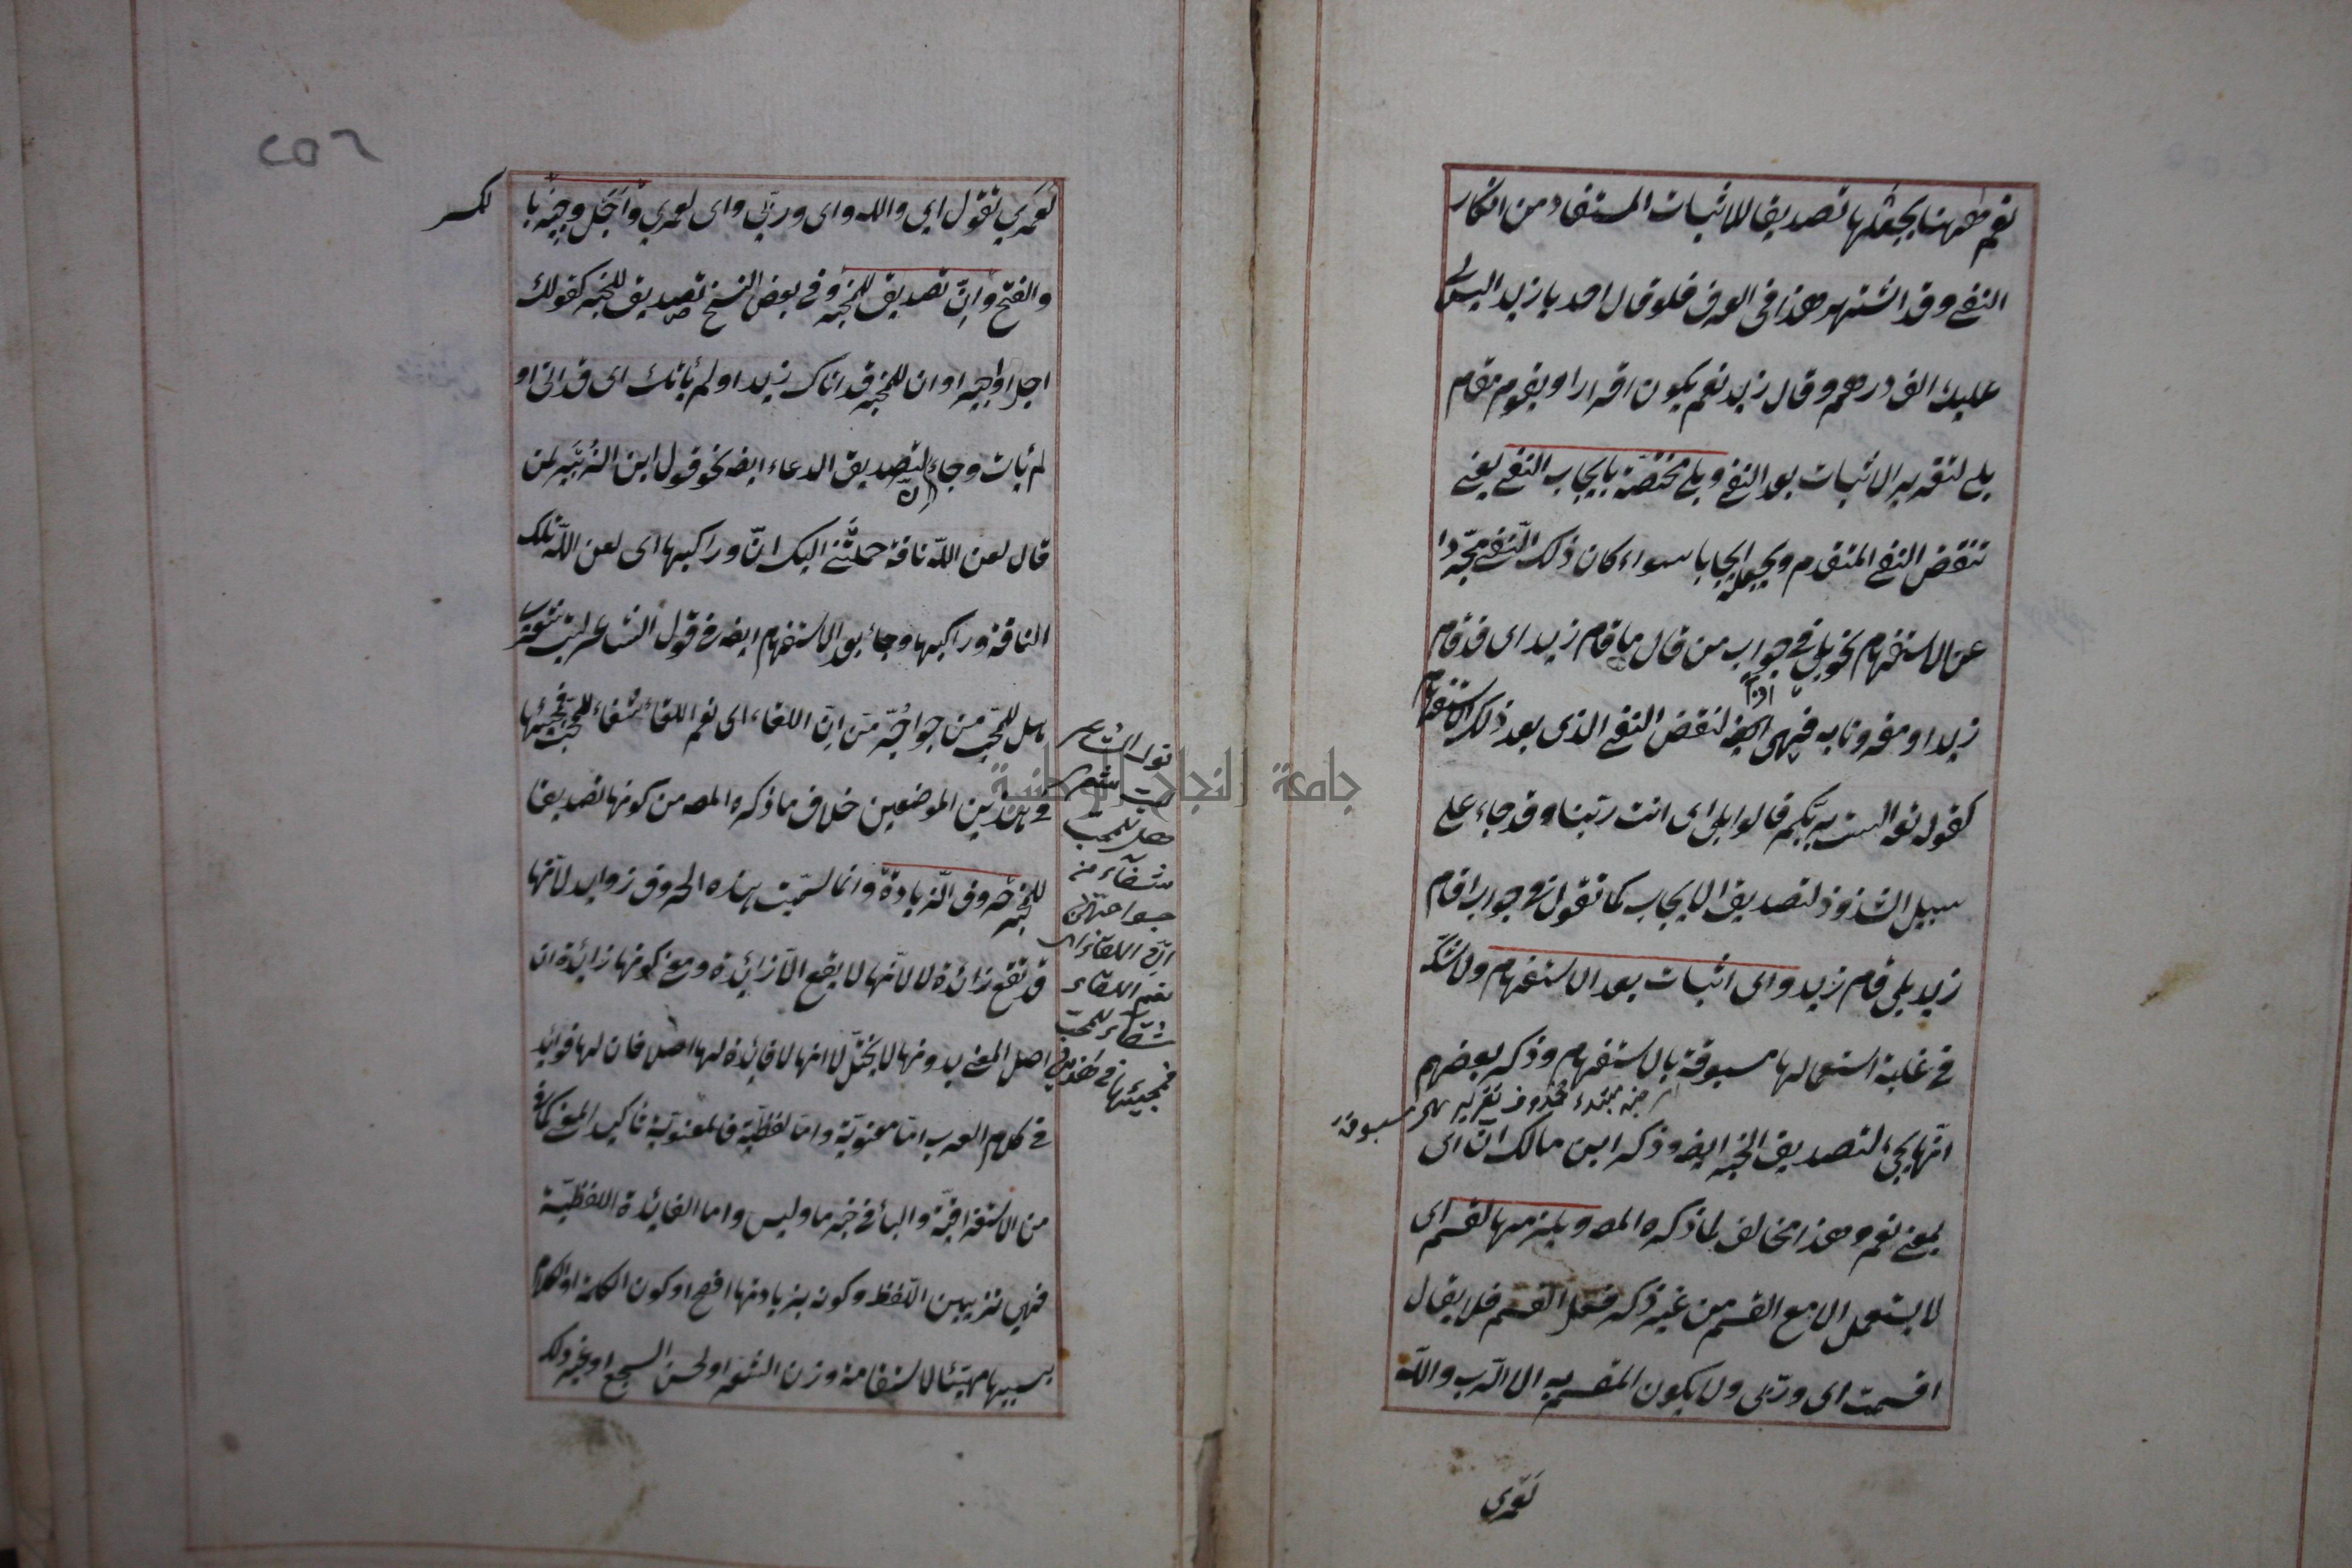 نعم ههنا يجعلها تصديقا للاثبات المستفاد من انكار
النفى وقد اشتهر هذا فى العرف فلو قال احد يا زيد اليس لى
عليك الف درهم وقال زيد نعم يكون اقرارا ويقوم مقام
بلى لتقرير الاثبات بعد النفى وبلى مختصة بايجاب النفى يعنى
تنقض النفى المتقدم ويجعله ايجابا سواء كان ذلك النفى مجردا
عن الاستفهام نحو بلى فى جواب من قال ما قام زيد اى قد قام
زيد او مقرونا به فهى اذن لنقض النفى الذى بعد ذلك الاستفهام
كقوله تع الست بربكم قالوا بلى اى انت ربنا وقد جاء على
سبيل الشذوذ لتصديق الايجاب كما تقول فى جواب اقام
زيد بلى قام زيد واى اثبات بعد الاستفهام ولا شك
فى غلبة استعمالها مسبوقة بالاستفهام وذكر بعضهم
خبر مبتدء محذوف تقديره هى مسبوقة
انها يجئ لتصديق الخبر ايضه وذكر ابن مالك ان اى
بمعنى نعم وهذا مخالف لما ذكره المص ويلزمها القسم اى
لا يستعمل الا مع القسم من غير ذكر فعل القسم فلا يقال
اقسمت اى وربى ولا يكون المقسم به الا الرب والله
لعمرى
٢٥٦
لعمرى تقول اى والله واى وربى واى لعمرى واجل وجير با
لكسر
والفتح وان تصديق للمخبر وفى بعض النسخ تصديق للخبر كقولك
اجل او جير او ان للمخبر قد اتاك زيد او لم يأتك اى قد اتى او
لم يات وجاء ان لتصديق الدعاء ايضه نحو قول ابن الزبير لمن
قال لعن الله ناقة حملتنى اليك ان وراكبها اى لعن الله تلك
الناقة وراكبها وجاء بعد الاستفهام ايضه فى قول الشاعر ليت شعرى
هل للمحب من جوا حبهن ان اللقاء اى نعم اللقاء شفاء للمحب فمجيئها
فى هذين الموضعين خلاف ما ذكره المص من كونها تصديقا
للمخبر حروف الزيادة وانما سميت هذه الحروف زوايد لانها
قد تقع زائدة لا لانها لا يقع الا زائدة ومعنى كونها زائدة ان
اصل المعنى بدونها لا يختل لا انها لا فائدة لها اصلا فان لها فوائد
فى كلام العرب اما معنوية واما لفظية فالمعنوية تاكيد المعنى كما فى
من الاستغراقية والباء فى خبر ما وليس واما الفايدة اللفظية
فهى تزيين اللفظ وكونه بزيادتها افصح او كون الكلمة او الكلام
بسببها مهيئا لاستقامة وزن الشعر او لحسن السجع او غير ذلك
قول الشاعر
ليت شعرى
هل للمحب
شفاء من
جوا حبهن
ان اللقاء اى
نعم اللقاء
شفاء للمحب
فمجيئها فى هذين
جامعة النجاح الوطنية